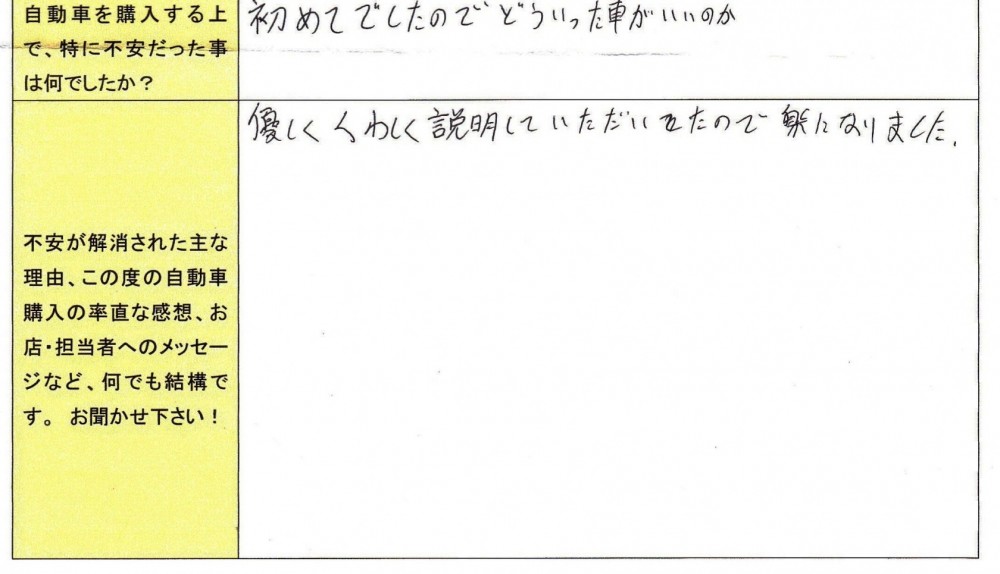 自動車を購入する上
で、特に不安だった事
は何でしたか？
初めてでしたのでどういった車がいいのか
不安が解消された主な
理由、この度の自動車
購入の率直な感想、お
店・担当者へのメッセー
ジなど、何でも結構で
す。 お聞かせ下さい！
優しくくわしく説明していただいたので になりました。